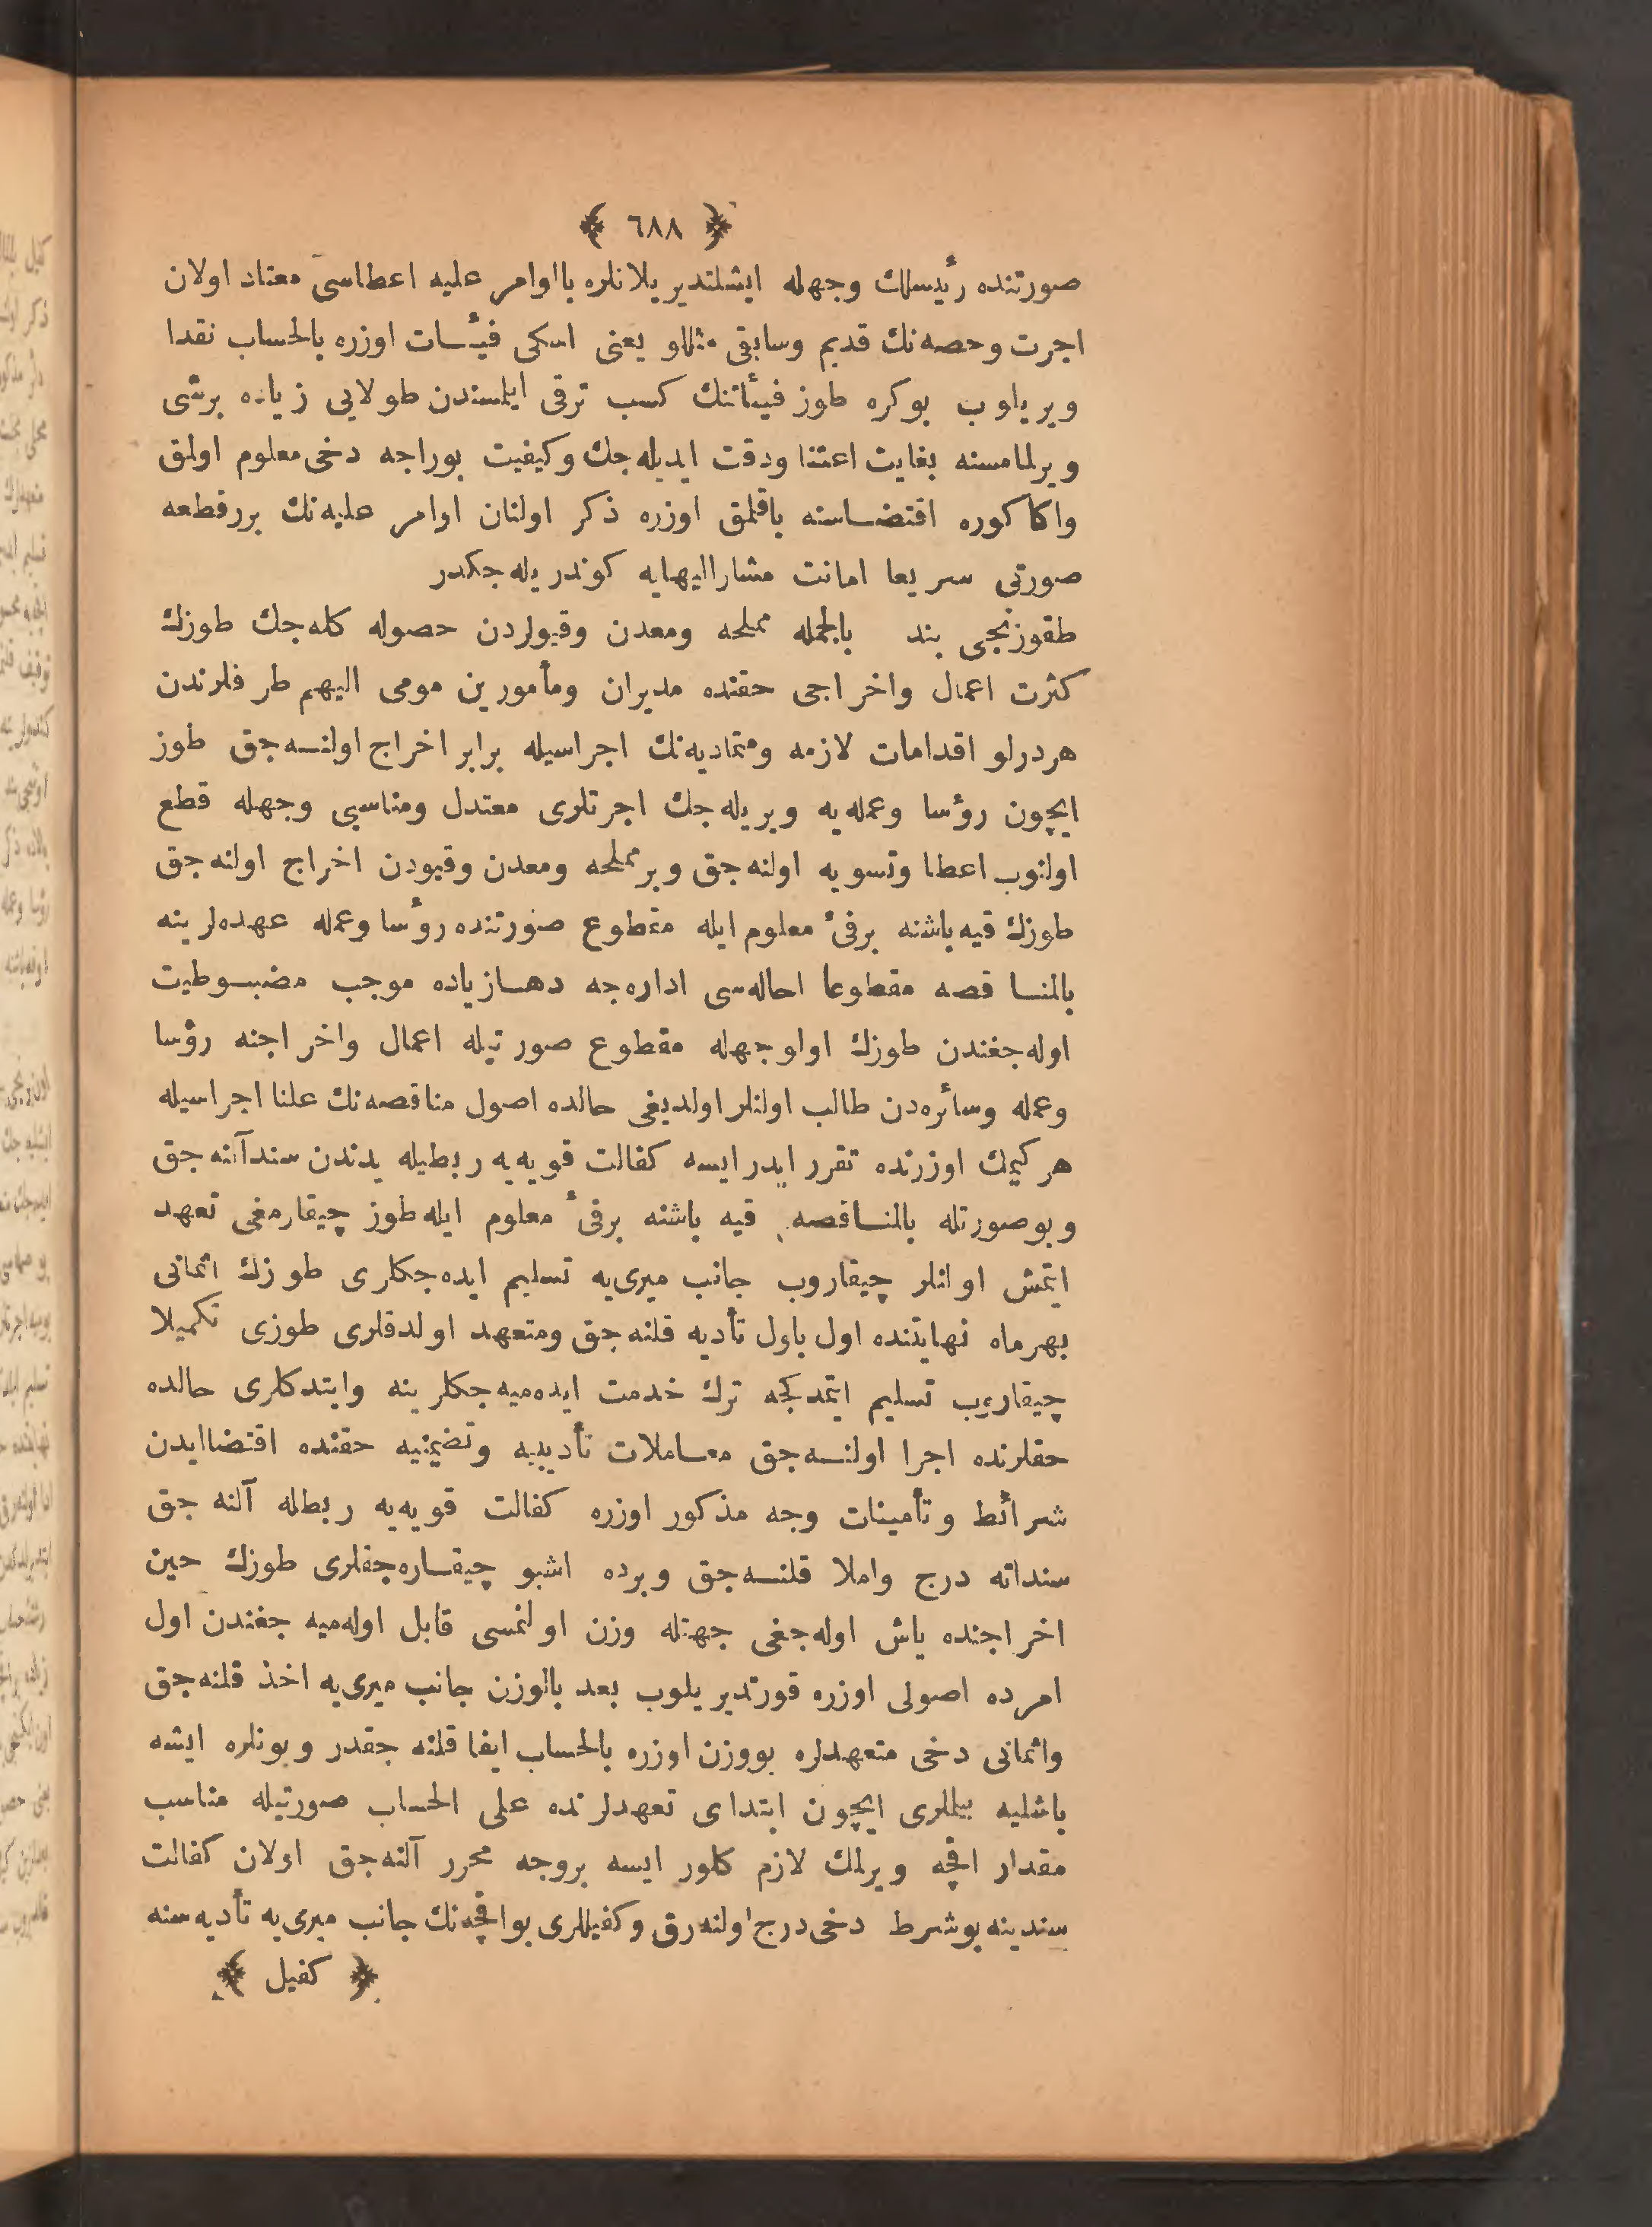 ﴿ ٦٨٨ ﴾
صورتنده رئیسلك وجهله ایشلتدیریلانلره بااوامر علیه اعطاسی معتاد اولان
اجرت وحصه‌نك قدیم وسابقی مثللو یعنی اسكی فیئسات اوزره بالحساب نقدا
ویریلوب بوكره طوز فیئاتنك كسب ترقی ایلسندن طولایی زیاده برشی
ویرلمامسنه بغایت اعتنا ودقت ایدیله‌جك وكیفیت بوراجه دخی معلوم اولمق
واكا كوره اقتضاسنه باقلمق اوزره ذكر اولنان اوامر علیه‌نك بررقطعه
صورتی سریعا امانت مشارالیهایه كوندریله‌جكدر
طقوزنجی بند بالجمله مملحه ومعدن وقیولردن حصوله كله‌جك طوزك
كثرت اعمال واخراجی حقنده مدیران ومأمورین مومی الیهم طرفلرندن
هردرلو اقدامات لازمه ومتمادیه‌نك اجراسیله برابر اخراج اولنسه‌جق طوز
ایچون رؤسا وعمله‌یه ویریله‌جك اجرتلری معتدل ومناسبی وجهله قطع
اولنوب اعطا وتسویه اولنه‌جق وبر مملحه ومعدن وقیودن اخراج اولنه‌جق
طوزك قیه باشنه برفئ معلوم ایله مقطوع صورتنده رؤسا وعمله عهده‌لرینه
بالمناقصه مقطوعا احاله‌سی اداره‌جه دها زیاده موجب مضبوطیت
اوله‌جغندن طوزك اولوجهله مقطوع صورتیله اعمال واخراجنه رؤسا
وعمله وسائره‌دن طالب اولنلر اولدیغی حالده اصول مناقصه‌نك علنا اجراسیله
هركیمك اوزرنده تقرر ایدر ایسه كفالت قویه‌یه ربطیله یدندن سندآلنه‌جق
وبوصورتله بالمناقصه قیه باشنه برفئ معلوم ایله طوز چیقارمغی تعهد
ایتمش اولنلر چیقاروب جانب میری‌یه تسلیم ایده‌جكلری طوزك اثمانی
بهرماه نهایتنده اول باول تأدیه قلنه‌جق ومتعهد اولدقلری طوزی تكمیلا
چیقاروب تسلیم ایتمدكجه ترك خدمت ایده‌میه‌جكلرینه وایتدكلری حالده
حقلرنده اجرا اولنسه‌جق معاملات تأدیبیه وتضمینیه حقنده اقتضاایدن
شرائط وتأمینات وجه مذكور اوزره كفالت قویه‌یه ربطله آلنه‌جق
سنداته درج واملا قلنسه‌جق وبرده اشبو چیقاره‌جقلری طوزك حین
اخراجنده یاش اوله‌جغی جهتله وزن اولنمسی قابل اوله‌میه‌جغندن اول
امرده اصولی اوزره قورتدیریلوب بعد بالوزن جانب میری‌یه اخذ قلنه‌جق
واثمانی دخی متعهدلره بووزن اوزره بالحساب ایفا قلنه‌جقدر وبونلره ایشه
باشلیه بیللری ایچون ابتدای تعهدلرنده علی الحساب صورتیله مناسب
مقدار اقچه ویرلمك لازم كلور ایسه بروجه محرر آلنه‌جق اولان كفالت
سندینه بوشرط دخی درج اولنه‌رق وكفیللری بواقچه‌نك جانب میری‌یه تأدیه‌سنه
﴿ كفیل ﴾